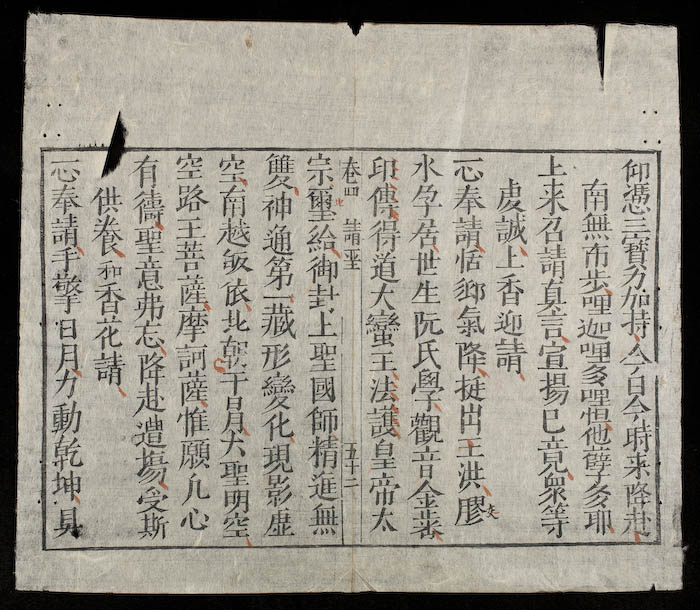 仰憑三寳力加持今日今時来降赴
南無布步哩迦哩多哩怛他孽多耶
上来召請真言宣揚已竟衆等
虔誠上香迎請
一心奉請恬鄉氣降挺出王洪膠
水孕居世生阮氏學觀音金蕃
印傳得道大蠻王法護皇帝太
卷四 請聖 五十二
宗璽給御封上聖國師精進無
雙神通第一藏形變化現影虚
空南越皈依北朝千日月大聖明空
空路王菩薩摩訶薩惟願凢心
有禱聖意弗忘降赴遺塲受斯
供養和香花請
一心奉請手擎日月力動乾坤具